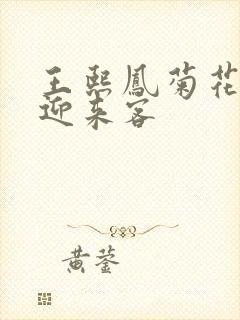 王熙鳳菊花
迎来客
黄蓥